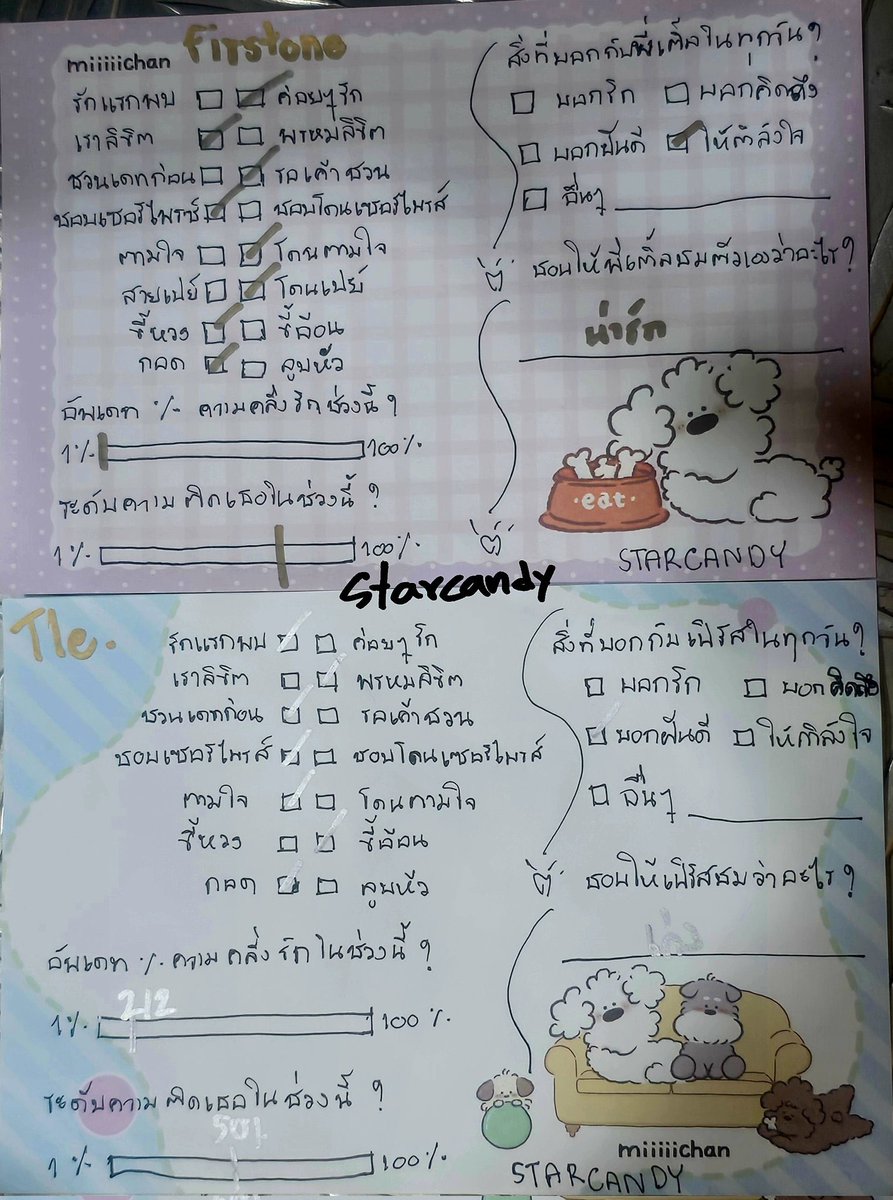 miiiiichan firstone
รักแรกพบ ค่อยๆรัก
เราลิขิต พรหมลิขิต
ชวนเดทก่อน รอเค้าชวน
ชอบเซอร์ไพรซ์ ชอบโดนเซอร์ไพรส์
ตามใจ โดนตามใจ
สายเปย์ โดนเปย์
ขี้หวง ขี้อ้อน
กอด ลูบหัว
อัพเดท % ความคลั่งรักช่วงนี้?
1% 100%
ระดับความติดเธอในช่วงนี้?
1% 100%
สิ่งที่บอกกับพี่เติ้ลในทุกวัน?
บอกรัก บอกคิดถึง
บอกฝันดี ให้กำลังใจ
อื่นๆ
ชอบให้พี่เติ้ลชมตัวเองว่าอะไร?
น่ารัก
eat
STARCANDY
starcandy
Tle.
รักแรกพบ ค่อยๆรัก
เราลิขิต พรหมลิขิต
ชวนเดทก่อน รอเค้าชวน
ชอบเซอร์ไพรส์ ชอบโดนเซอร์ไพรส์
ตามใจ โดนตามใจ
ขี้หวง ขี้อ้อน
กอด ลูบหัว
อัพเดท % ความคลั่งรักในช่วงนี้?
212
1% 100%
ระดับความติดเธอในช่วงนี้?
50%
1% 100%
สิ่งที่บอกกับเฟิร์สในทุกวัน?
บอกรัก บอกคิดถึง
บอกฝันดี ให้กำลังใจ
อื่นๆ
ชอบให้เฟิร์สชมว่าอะไร?
เก่ง
miiiiichan
STARCANDY